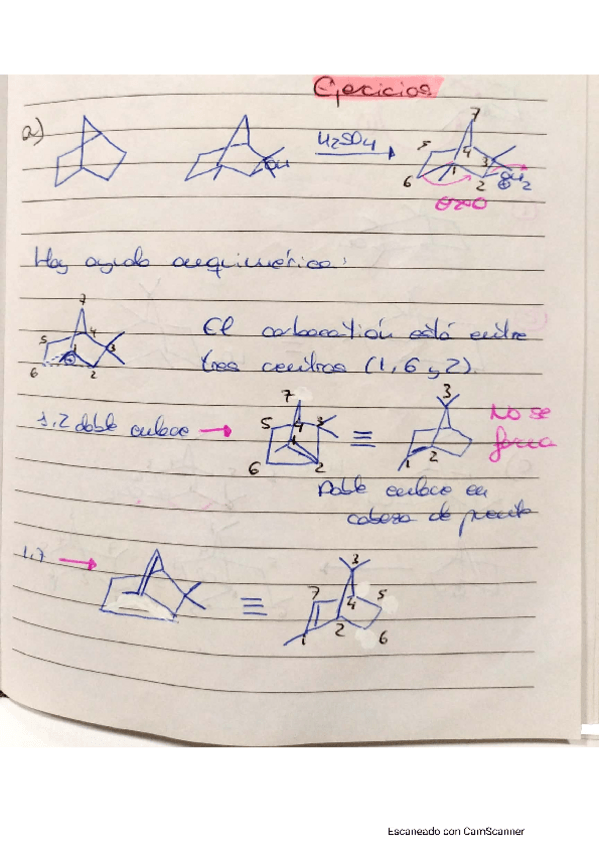 Ejercicios
a)
OH
H2SO4
7
5
4
3
6
1
2
⊕OH2
Hay ayuda anquimérica:
7
5
4
3
⊕
6
2
El carbocatión está entre
tres centros (1, 6 y 2).
1,2 doble enlace →
7
5
4
3
1
6
2
≡
3
1
2
No se
forma
Doble enlace en
cabeza de puente
1,7 →
≡
3
7
4
5
1
2
6
Escaneado con CamScanner